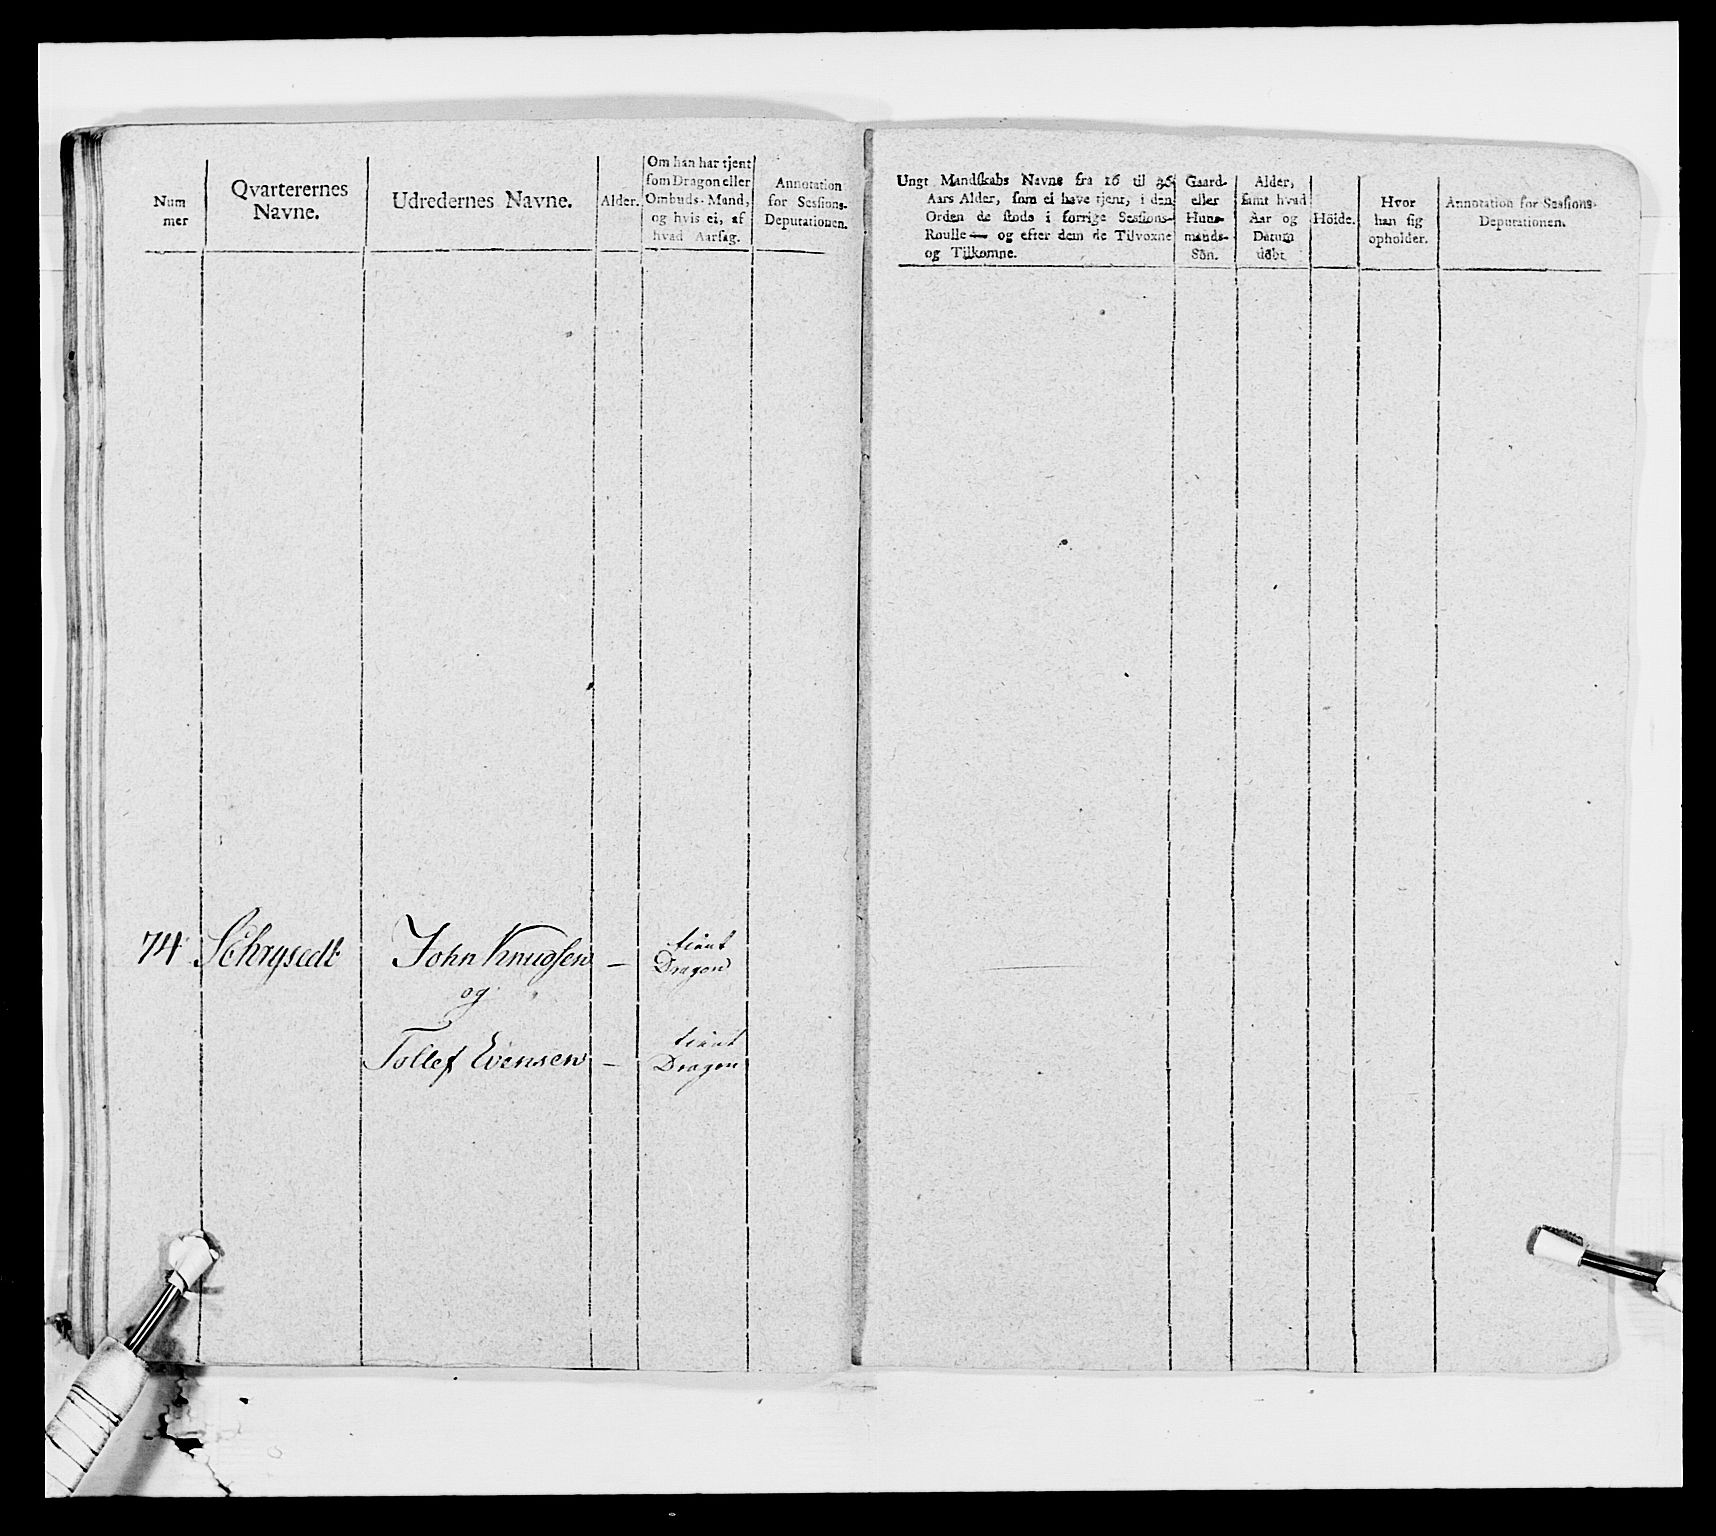 Num
mer
Qvarterernes
Navne.
Udredernes Navne.
Alder.
Om han har tjent
som Dragon eller
Ombuds-Mand,
og hvis ei, af
hvad Aarsag.
Annotation
for Sessions-
Deputationen.
Ungt Mandskabs Navne fra 16 til 36
Aars Alder, som ei have tjent, i den
Orden de stode i forrige Sessions-
Roulle — og efter dem de Tilvoxne
og Tilkomne.
Gaard-
eller
Huus-
mands-
Sön.
Alder,
samt hvad
Aar og
Datum
död.
Höide.
Hvor
han sig
opholder.
Annotation for Sessions-
Deputationen.
74 Schrysedt John Knudsen — tient
Dragon
og
Tollef Evensen — tient
Dragon